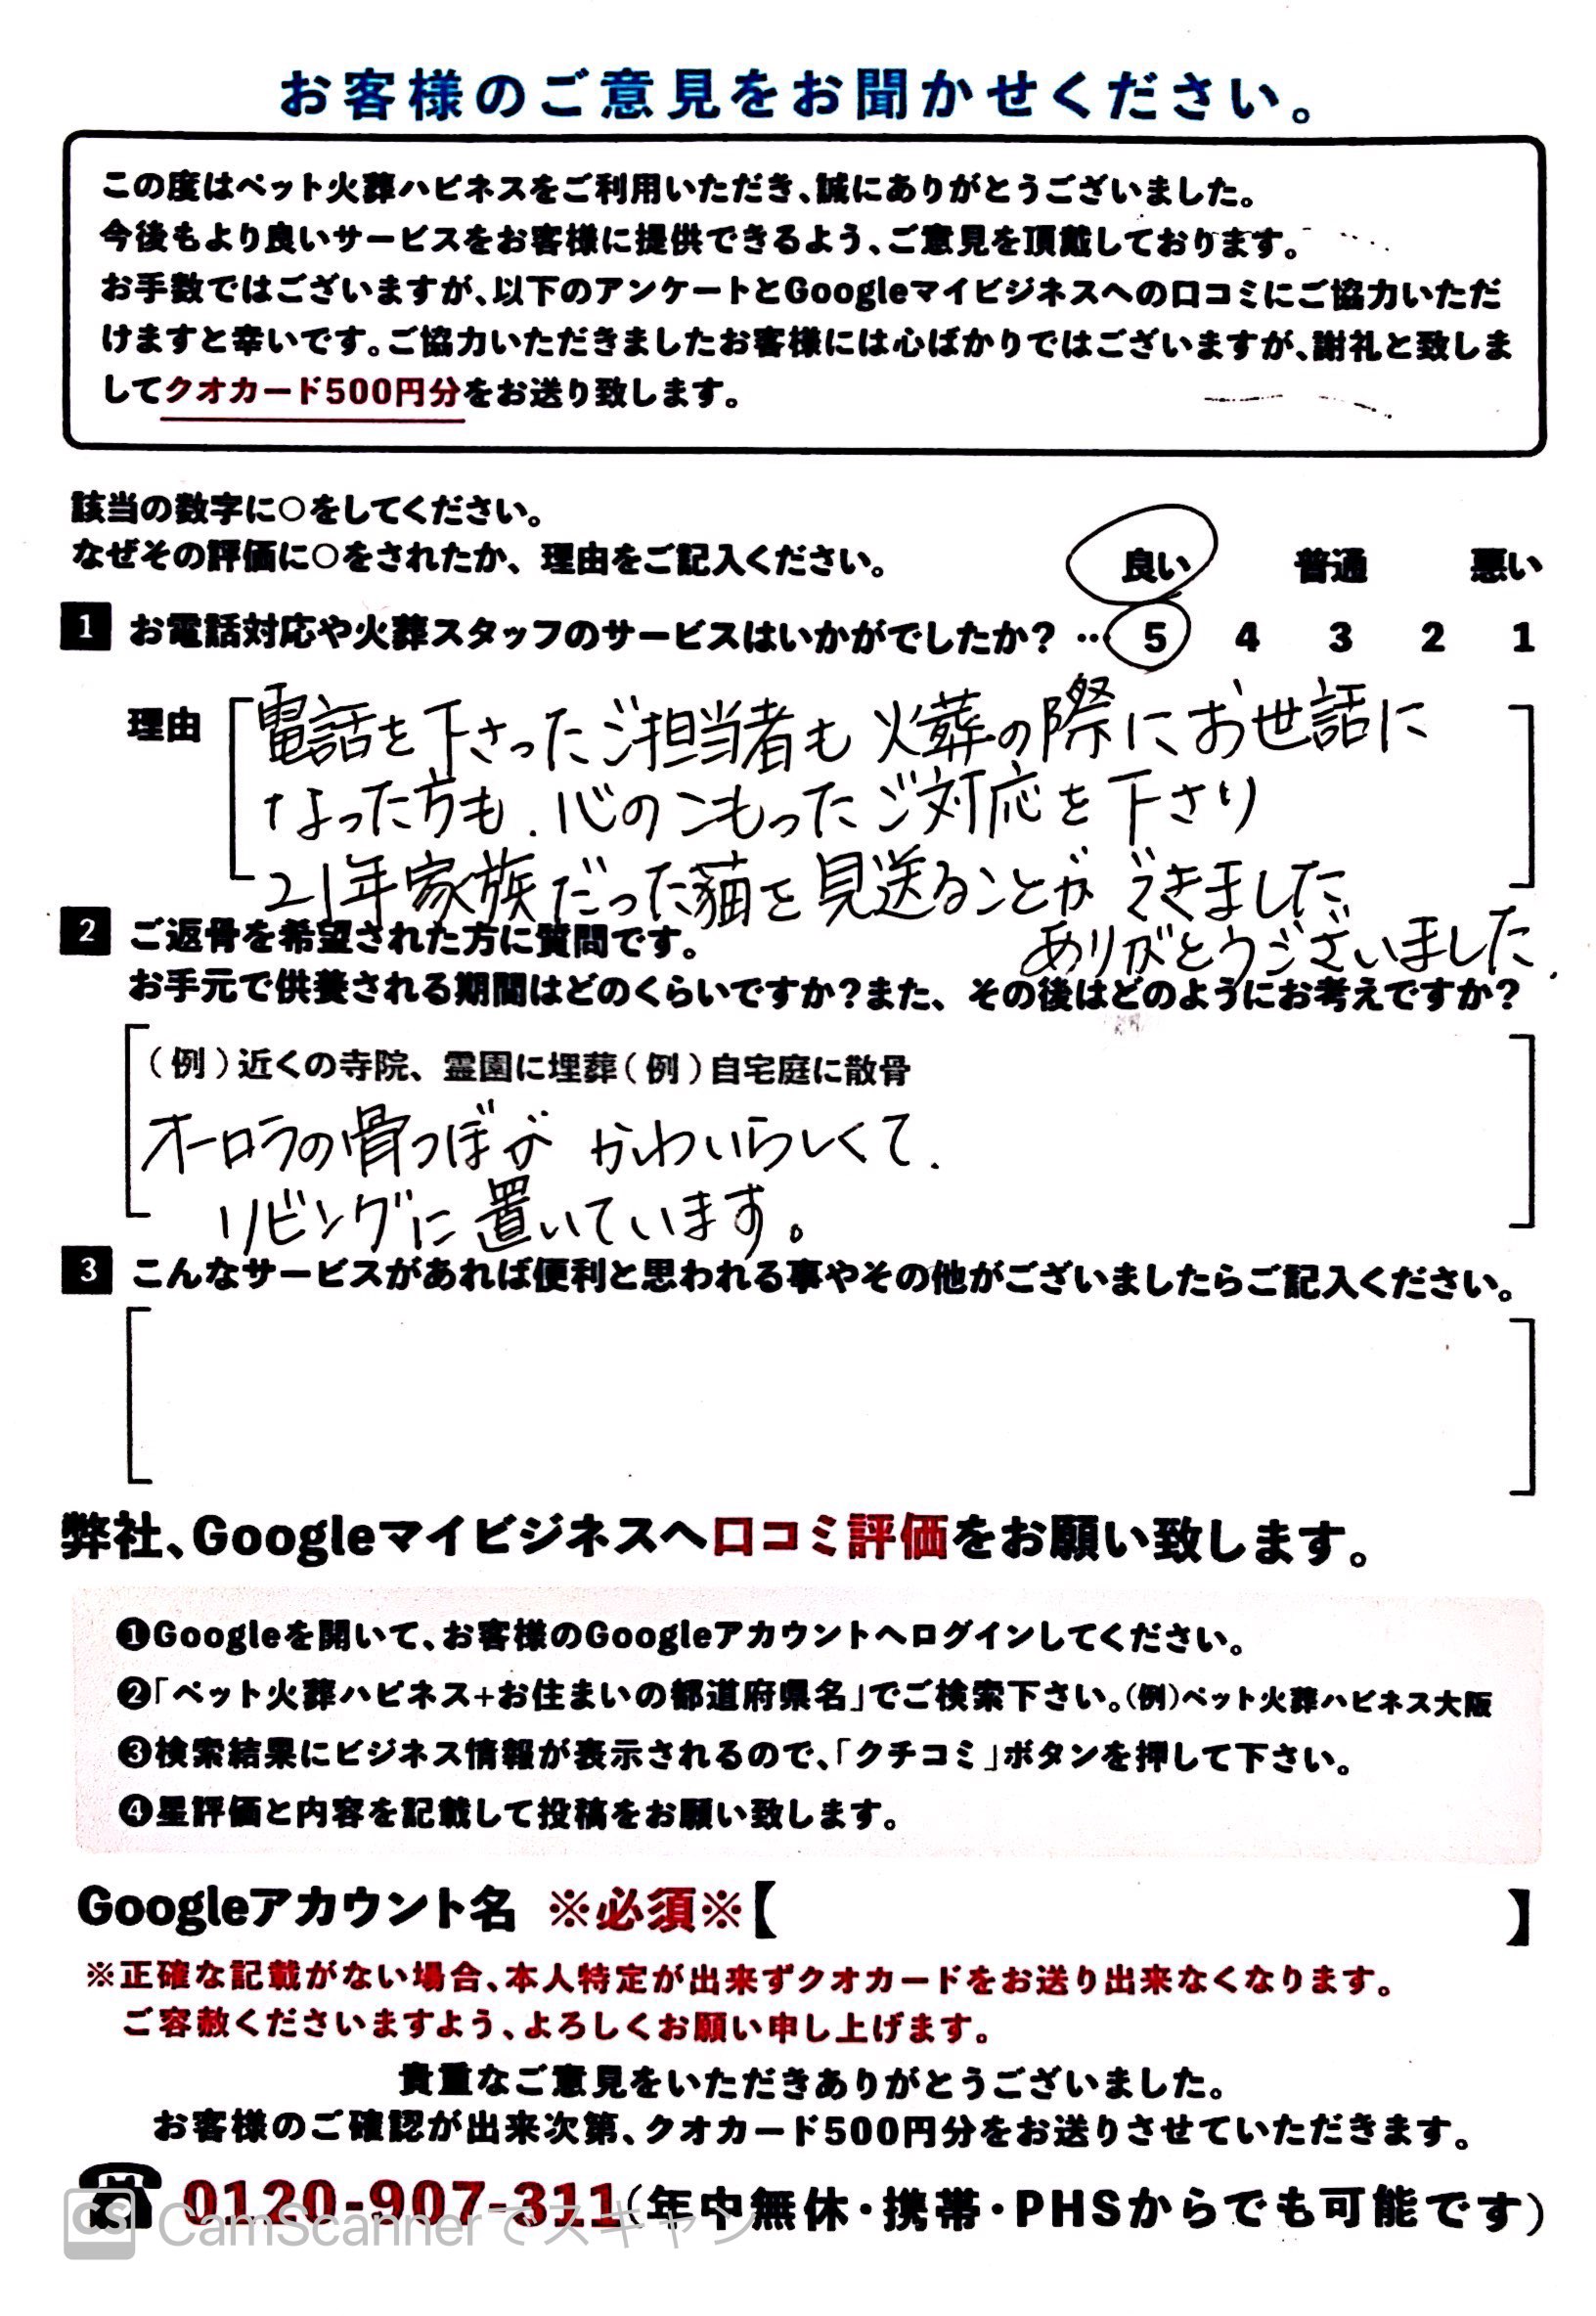 お客様のご意見をお聞かせください。
この度はペット火葬ハピネスをご利用いただき、誠にありがとうございました。
今後もより良いサービスをお客様に提供できるよう、ご意見を頂戴しております。
お手数ではございますが、以下のアンケートとGoogleマイビジネスへの口コミにご協力いただ
けますと幸いです。ご協力いただきましたお客様には心ばかりではございますが、謝礼と致しま
してクオカード500円分をお送り致します。
該当の数字に○をしてください。
なぜその評価に○をされたか、理由をご記入ください。
良い 普通 悪い
1 お電話対応や火葬スタッフのサービスはいかがでしたか？ … 5 4 3 2 1
理由
電話を下さったご担当者も 火葬の際にお世話に
なった方も、心のこもったご対応を下さり
21年家族だった猫を見送ることができました
ありがとうございました.
2 ご返骨を希望された方に質問です。
お手元で供養される期間はどのくらいですか？また、その後はどのようにお考えですか？
（例）近くの寺院、霊園に埋葬（例）自宅庭に散骨
オーロラの骨つぼが かわいらしくて、
リビングに置いています。
3 こんなサービスがあれば便利と思われる事やその他がございましたらご記入ください。
弊社、Googleマイビジネスへ口コミ評価をお願い致します。
❶Googleを開いて、お客様のGoogleアカウントへログインしてください。
❷「ペット火葬ハピネス+お住まいの都道府県名」でご検索下さい。（例）ペット火葬ハピネス大阪
❸検索結果にビジネス情報が表示されるので、「クチコミ」ボタンを押して下さい。
❹星評価と内容を記載して投稿をお願い致します。
Googleアカウント名 ※必須※【 】
※正確な記載がない場合、本人特定が出来ずクオカードをお送り出来なくなります。
ご容赦くださいますよう、よろしくお願い申し上げます。
貴重なご意見をいただきありがとうございました。
お客様のご確認が出来次第、クオカード500円分をお送りさせていただきます。
0120-907-311（年中無休・携帯・PHSからでも可能です）
CS CamScannerでスキャン